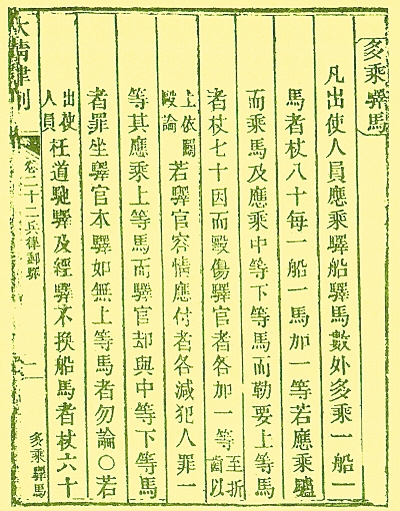 多乘驛馬
凡出使人員應乘驛船驛馬數外多乘一船一
馬者杖八十每一船一馬加一等若應乘驢
而乘馬及應乘中等下等馬而勒要上等馬
者杖七十因而毆傷驛官者各加一等至折齒以
上依鬬毆論若驛官容情應付者各減犯人罪一
等其應乘上等馬而驛官却與中等下等馬
者罪坐驛官本驛如無上等馬者勿論○若
出使人員枉道馳驛及經驛不換船馬者杖六十
大清律例 卷二十二兵律郵驛 一 多乘驛馬